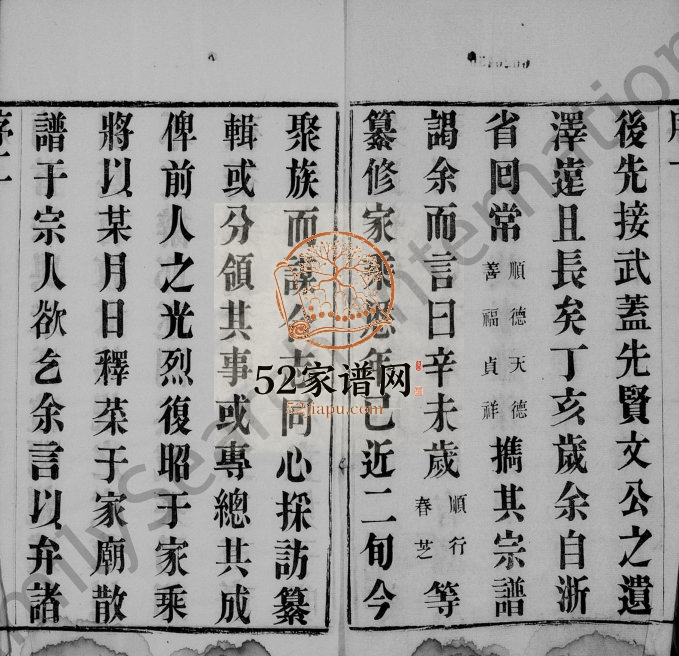 後先接武蓋先賢文公之遺
澤遠且長矣丁亥歲余自浙
省回常順德天德善福貞祥攜其宗譜
謁余而言曰辛未歲順行春芝等
纂修家乘忽年已近二旬今
聚族而謀同心採訪纂
輯或分領其事或專總其成
俾前人之光烈復昭于家乘
將以某月日釋菜于家廟散
譜于宗人欲乞余言以弁諸
序二
52家谱网
52jiapu.com
FamilySearch International